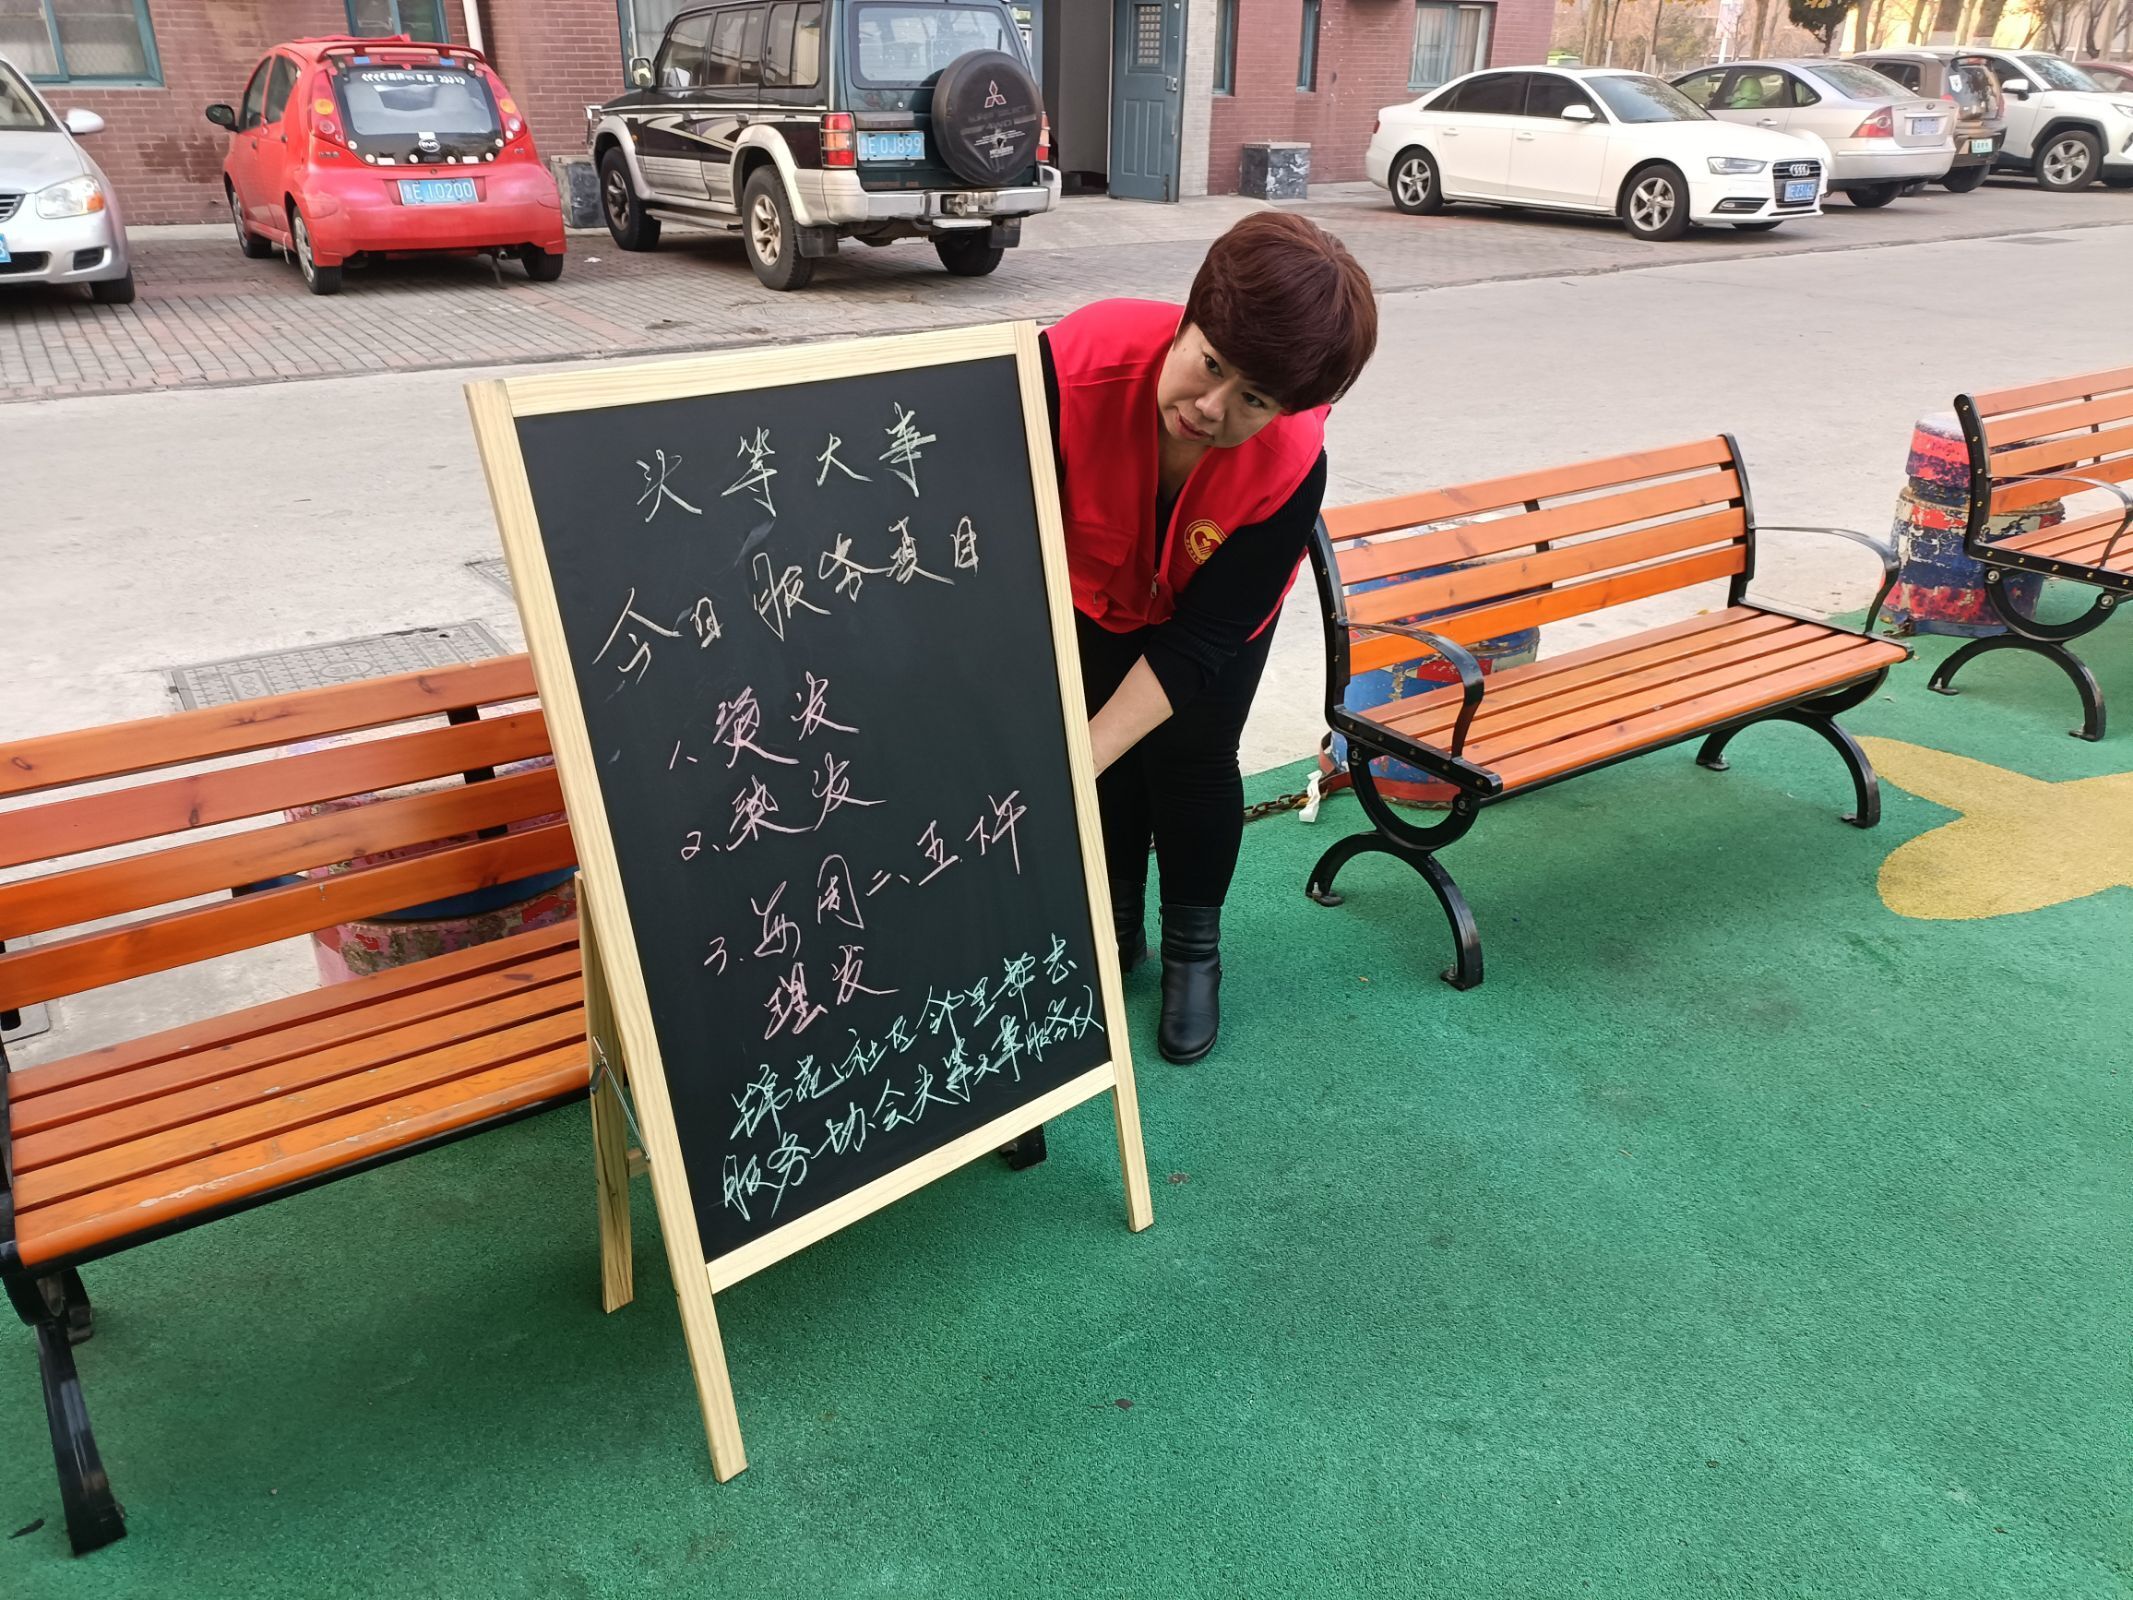 头等大事
今日服务项目
1、烫发
2、染发
3、每周二、五、下午
理发
锦苑一社区邻里
服务协会头等大事服务队
E·J0200
E·0J899